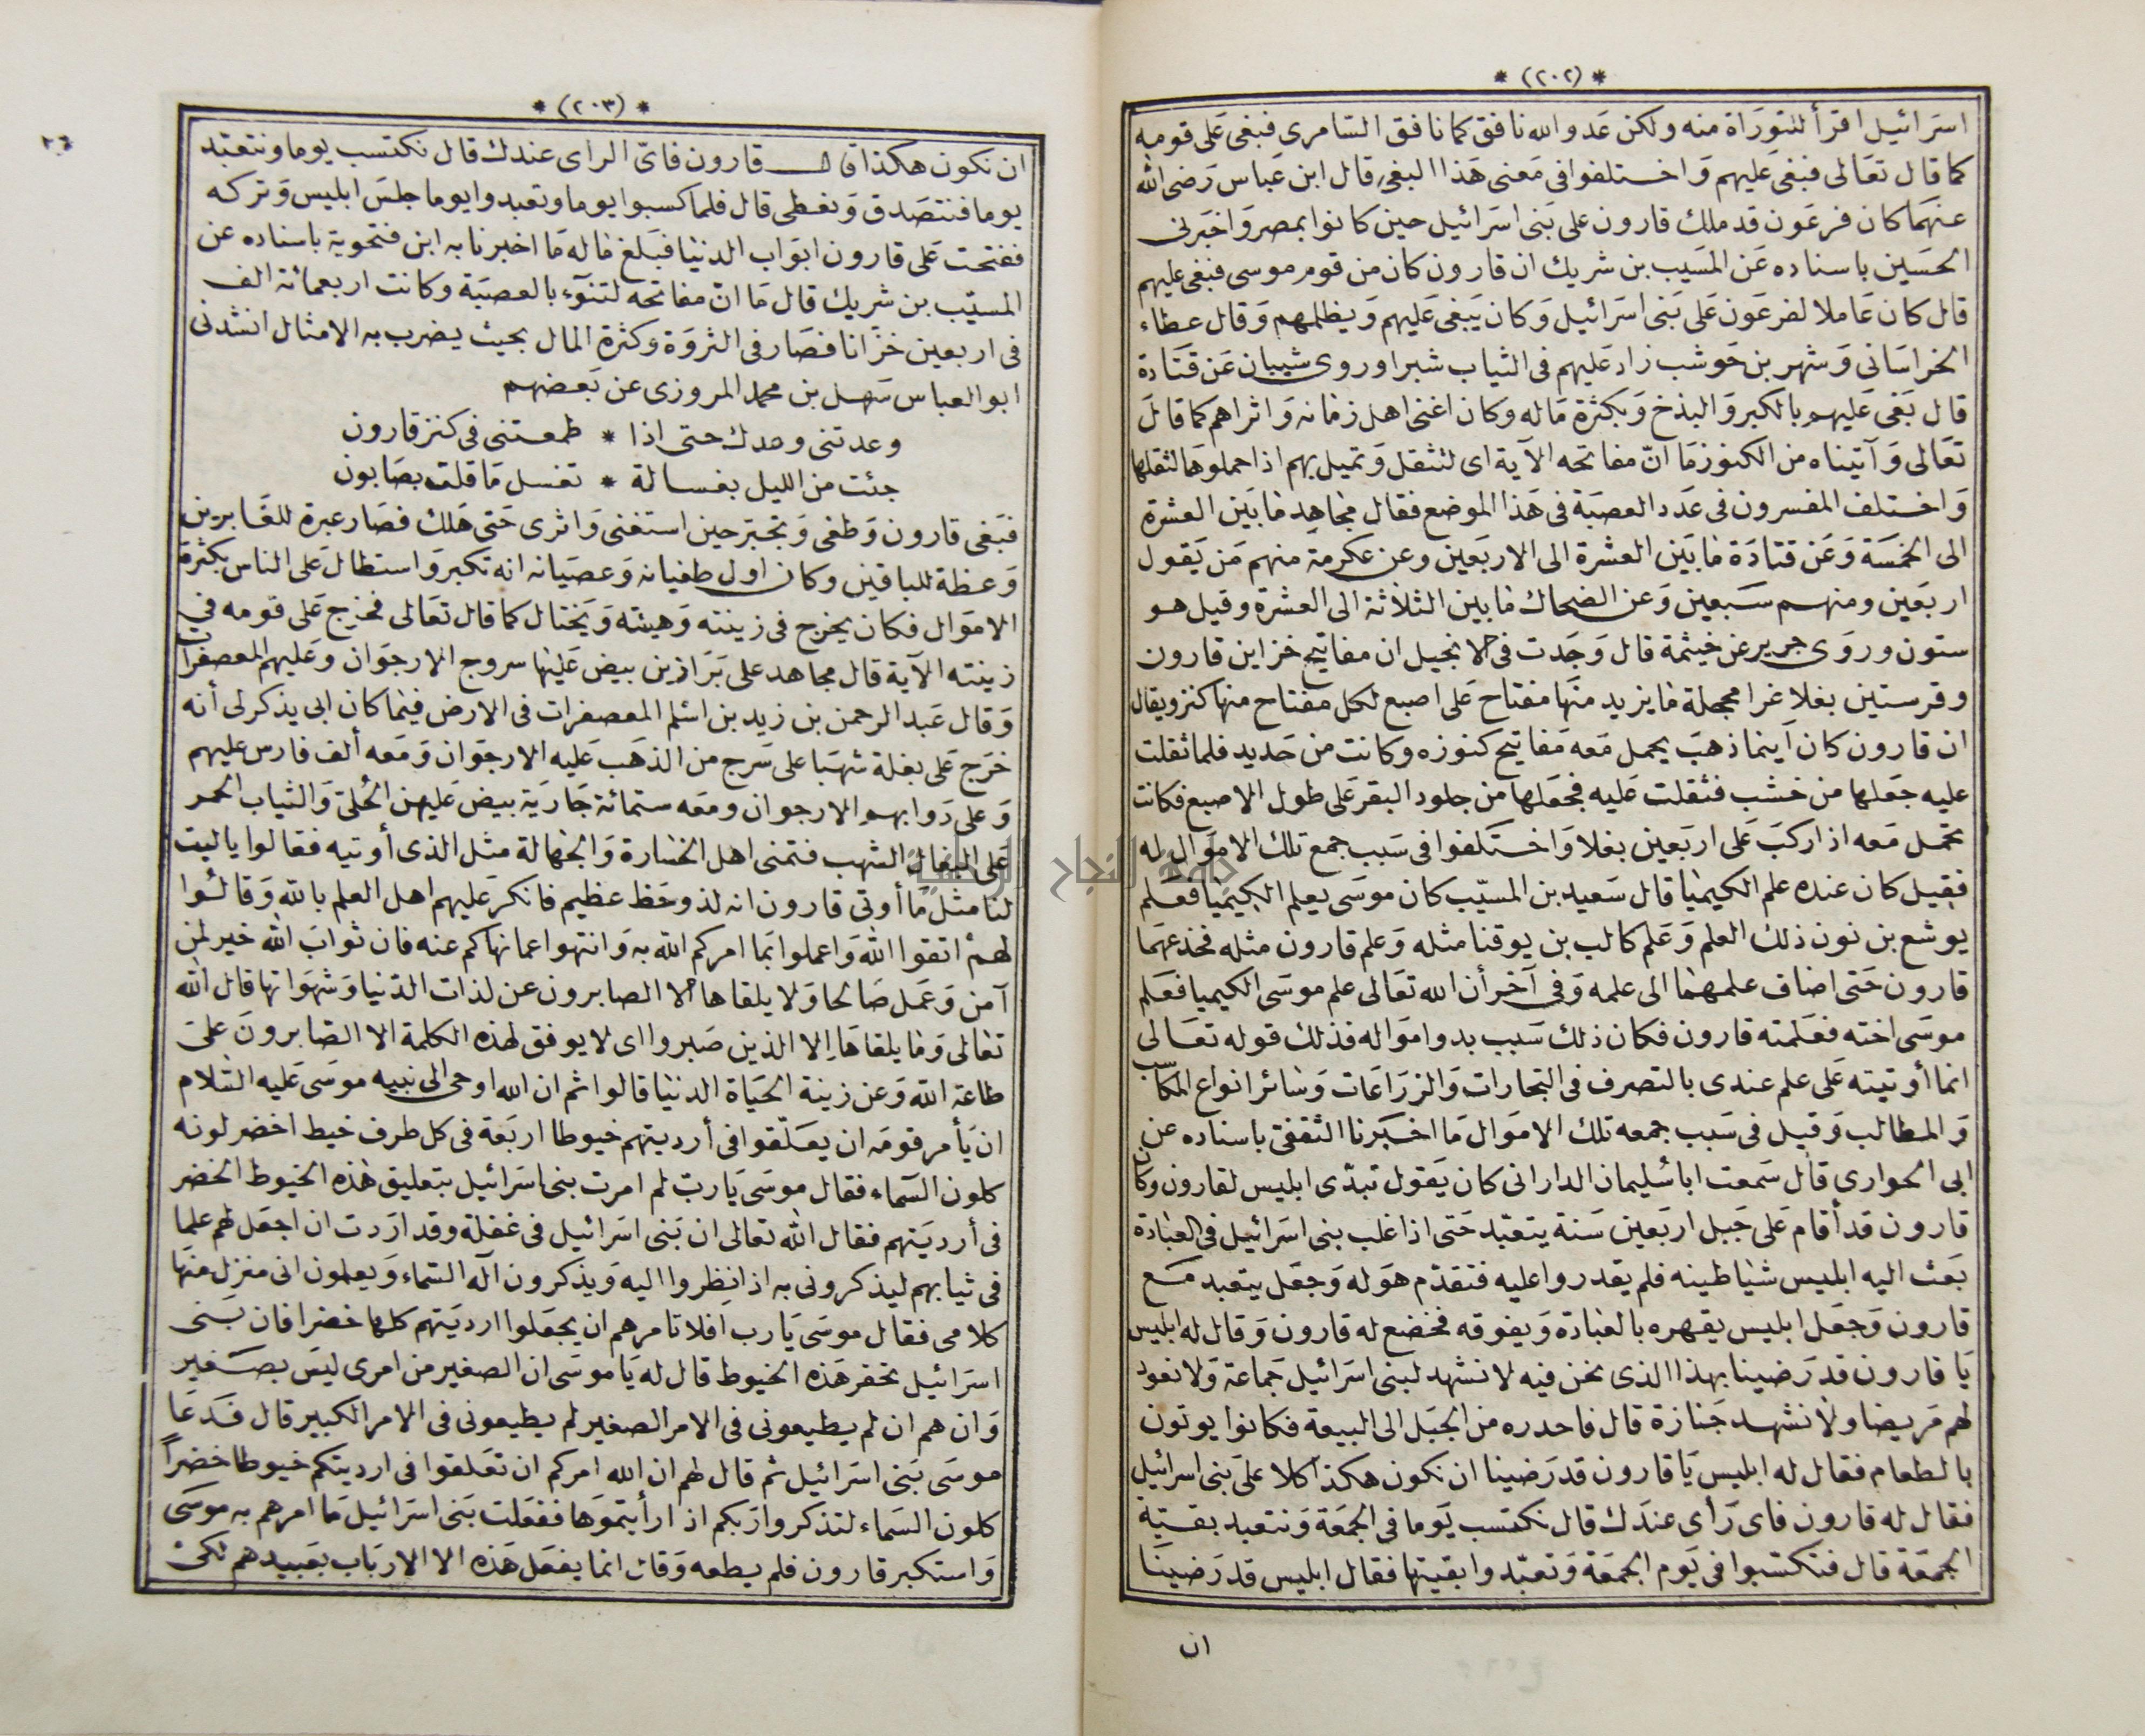 * (٢٠٢) *
اسرائيل اقرأ للتوراة منه ولكن عدو الله نافق كما نافق السامرى فبغى على قومه
كما قال تعالى فبغى عليهم واختلفوا فى معنى هذا البغى قال ابن عباس رضى الله
عنهما كان فرعون قد ملك قارون على بنى اسرائيل حين كانوا بمصر واخبرنى
الحسين باسناده عن المسيب بن شريك ان قارون كان من قوم موسى فبغى عليهم
قال كان عاملا لفرعون على بنى اسرائيل وكان يبغى عليهم ويظلمهم وقال عطاء
الخراسانى وشهر بن حوشب زاد عليهم فى الثياب شبرا وروى شيبان عن قتادة
قال بغى عليهم بالكبر والبذخ وبكثرة ماله وكان اغنى اهل زمانه واثراهم كما قال
تعالى وآتيناه من الكنوز ما انّ مفاتحه الآية اى لتثقل وتميل بهم اذا حملوها لثقلها
واختلف المفسرون فى عدد العصبة فى هذا الموضع فقال مجاهد ما بين العشرة
الى الخمسة وعن قتادة ما بين العشرة الى الاربعين وعن عكرمة منهم من يقول
اربعين ومنهم سبعين وعن الضحاك ما بين الثلاثة الى العشرة وقيل هو
ستون وروى جرير عن خيثمة قال وجدت فى الانجيل ان مفاتيح خزاين قارون
وقر ستين بغلا غرا محجلة ما يزيد منها مفتاح على اصبع لكل مفتاح منها كنز ويقال
ان قارون كان اينما ذهب يحمل معه مفاتيح كنوزه وكانت من حديد فلما ثقلت
عليه جعلها من خشب فثقلت عليه فجعلها من جلود البقر على طول الاصبع فكانت
تحمل معه اذا ركب على اربعين بغلا واختلفوا فى سبب جمع تلك الاموال له
فقيل كان عنده علم الكيميا قال سعيد بن المسيّب كان موسى يعلم الكيميا فعلم
يوشع بن نون ذلك العلم وعلم كالب بن يوقنا مثله وعلم قارون مثله فخدعهما
قارون حتى اضاف علمهما الى علمه وفى آخر أن الله تعالى علم موسى الكيميا فعلم
موسى اخته فعلمته قارون فكان ذلك سبب بدو امواله فذلك قوله تعالى
انما أوتيته على علم عندى بالتصرف فى التجارات والزراعات وسائر انواع المكاسب
والمطالب وقيل فى سبب جمعه تلك الاموال ما اخبرنا الثقفىّ باسناده عن
ابى الحوارى قال سمعت ابا سليمان الدارانى كان يقول تبدّى ابليس لقارون وكان
قارون قد أقام على جبل اربعين سنة يتعبّد حتى اذا غلب بنى اسرائيل فى العبادة
بعث اليه ابليس شياطينه فلم يقدروا عليه فتقدّم هو له وجعل يتعبد مع
قارون وجعل ابليس يقهره بالعبادة ويفوقه فخضع له قارون وقال له ابليس
يا قارون قد رضينا بهذا الذى نحن فيه لا نشهد لبنى اسرائيل جماعة ولا نعود
لهم مريضا ولا نشهد جنازة قال فاحدره من الجبل الى البيعة فكانوا يوتون
بالطعام فقال له ابليس يا قارون قد رضينا ان نكون هكذا كلا على بنى اسرائيل
فقال له قارون فاى رأى عندك قال نكتسب يوما فى الجمعة ونتعبد بقية
الجمعة قال فتكتسبوا فى يوم الجمعة وتعبّدوا بقيتها فقال ابليس قد رضينا
ان
* (٢٠٣) *
ان نكون هكذا قال قارون فاىّ الراى عندك قال نكتسب يوما ونتعبّد
يوما فنتصدق ونعطى قال فلما كسبوا يوما وتعبدوا يوما جلس ابليس وتركه
ففتحت على قارون ابواب الدنيا فبلغ ماله ما اخبرنا به ابن فتحوية باسناده عن
المسيّب بن شريك قال ما انّ مفاتحه لتنوء بالعصبة وكانت اربعمائة الف
فى اربعين خزانا فصار فى الثروة وكثرة المال بحيث يضرب به الامثال انشدنى
ابو العباس سهل بن محمد المروزى عن بعضهم
وعدتنى وعدك حتى اذا * طمعتنى فى كنز قارون
جئت من الليل بغسالة * تغسل ما قلت بصابون
فبغى قارون وطغى وتجبّر حين استغنى واثرى حتى هلك فصار عبرة للغابرين
وعظة للباقين وكان اول طغيانه وعصيانه انه تكبر واستطال على الناس بكثرة
الاموال فكان يخرج فى زينته وهيئته ويختال كما قال تعالى فخرج على قومه فى
زينته الآية قال مجاهد على براذين بيض عليها سروج الارجوان وعليهم المعصفرات
وقال عبد الرحمن بن زيد بن اسلم المعصفرات فى الارض فيما كان ابى يذكر لى أنه
خرج على بغلة شهبا على سرج من الذهب عليه الارجوان ومعه ألف فارس عليهم
وعلى دوابهم الارجوان ومعه ستمائة جارية بيض عليهن الحلىّ والثياب الحمر
على البغال الشهب فتمنى اهل الخسارة والجهالة مثل الذى أوتيه فقالوا يا ليت
لنا مثل ما أوتى قارون انه لذو حظ عظيم فانكر عليهم اهل العلم بالله وقالوا
لهم اتقوا الله واعملوا بما امركم الله به وانتهوا عما نهاكم عنه فان ثواب الله خير لمن
آمن وعمل صالحا ولا يلقاها الا الصابرون عن لذات الدّنيا وشهواتها قال الله
تعالى وما يلقاها إلا الذين صبروا اى لا يوفق لهذه الكلمة الا الصابرون على
طاعة الله وعن زينة الحياة الدنيا قالوا ثم ان الله اوحى الى نبيه موسى عليه السلام
ان يأمر قومه ان يعلّقوا فى أرديتهم خيوطا اربعة فى كل طرف خيط اخضر لونه
كلون السماء فقال موسى يا ربّ لم امرت بنى اسرائيل بتعليق هذه الخيوط الخضر
فى أرديتهم فقال الله تعالى ان بنى اسرائيل فى غفلة وقد اردت ان اجعل لهم علما
فى ثيابهم ليذكرونى به اذا نظروا اليه ويذكرون آله السماء ويعلمون انى منزل منها
كلامى فقال موسى يا رب افلا تامرهم ان يجعلوا ارديتهم كلها خضرا فان بنى
اسرائيل تحقر هذه الخيوط قال له يا موسى ان الصغير من امرى ليس بصغير
وان هم ان لم يطيعونى فى الامر الصغير لم يطيعونى فى الامر الكبير قال فدعا
موسى بنى اسرائيل ثم قال لهم ان الله امركم ان تعلقوا فى ارديتكم خيوطا خضراً
كلون السماء لتذكروا ربكم اذا رأيتموها ففعلت بنى اسرائيل ما امرهم به موسى
واستكبر قارون فلم يطعه وقال انما يفعل هذه الا الارباب بعبيدهم لكى
جامعة النجاح الوطنية